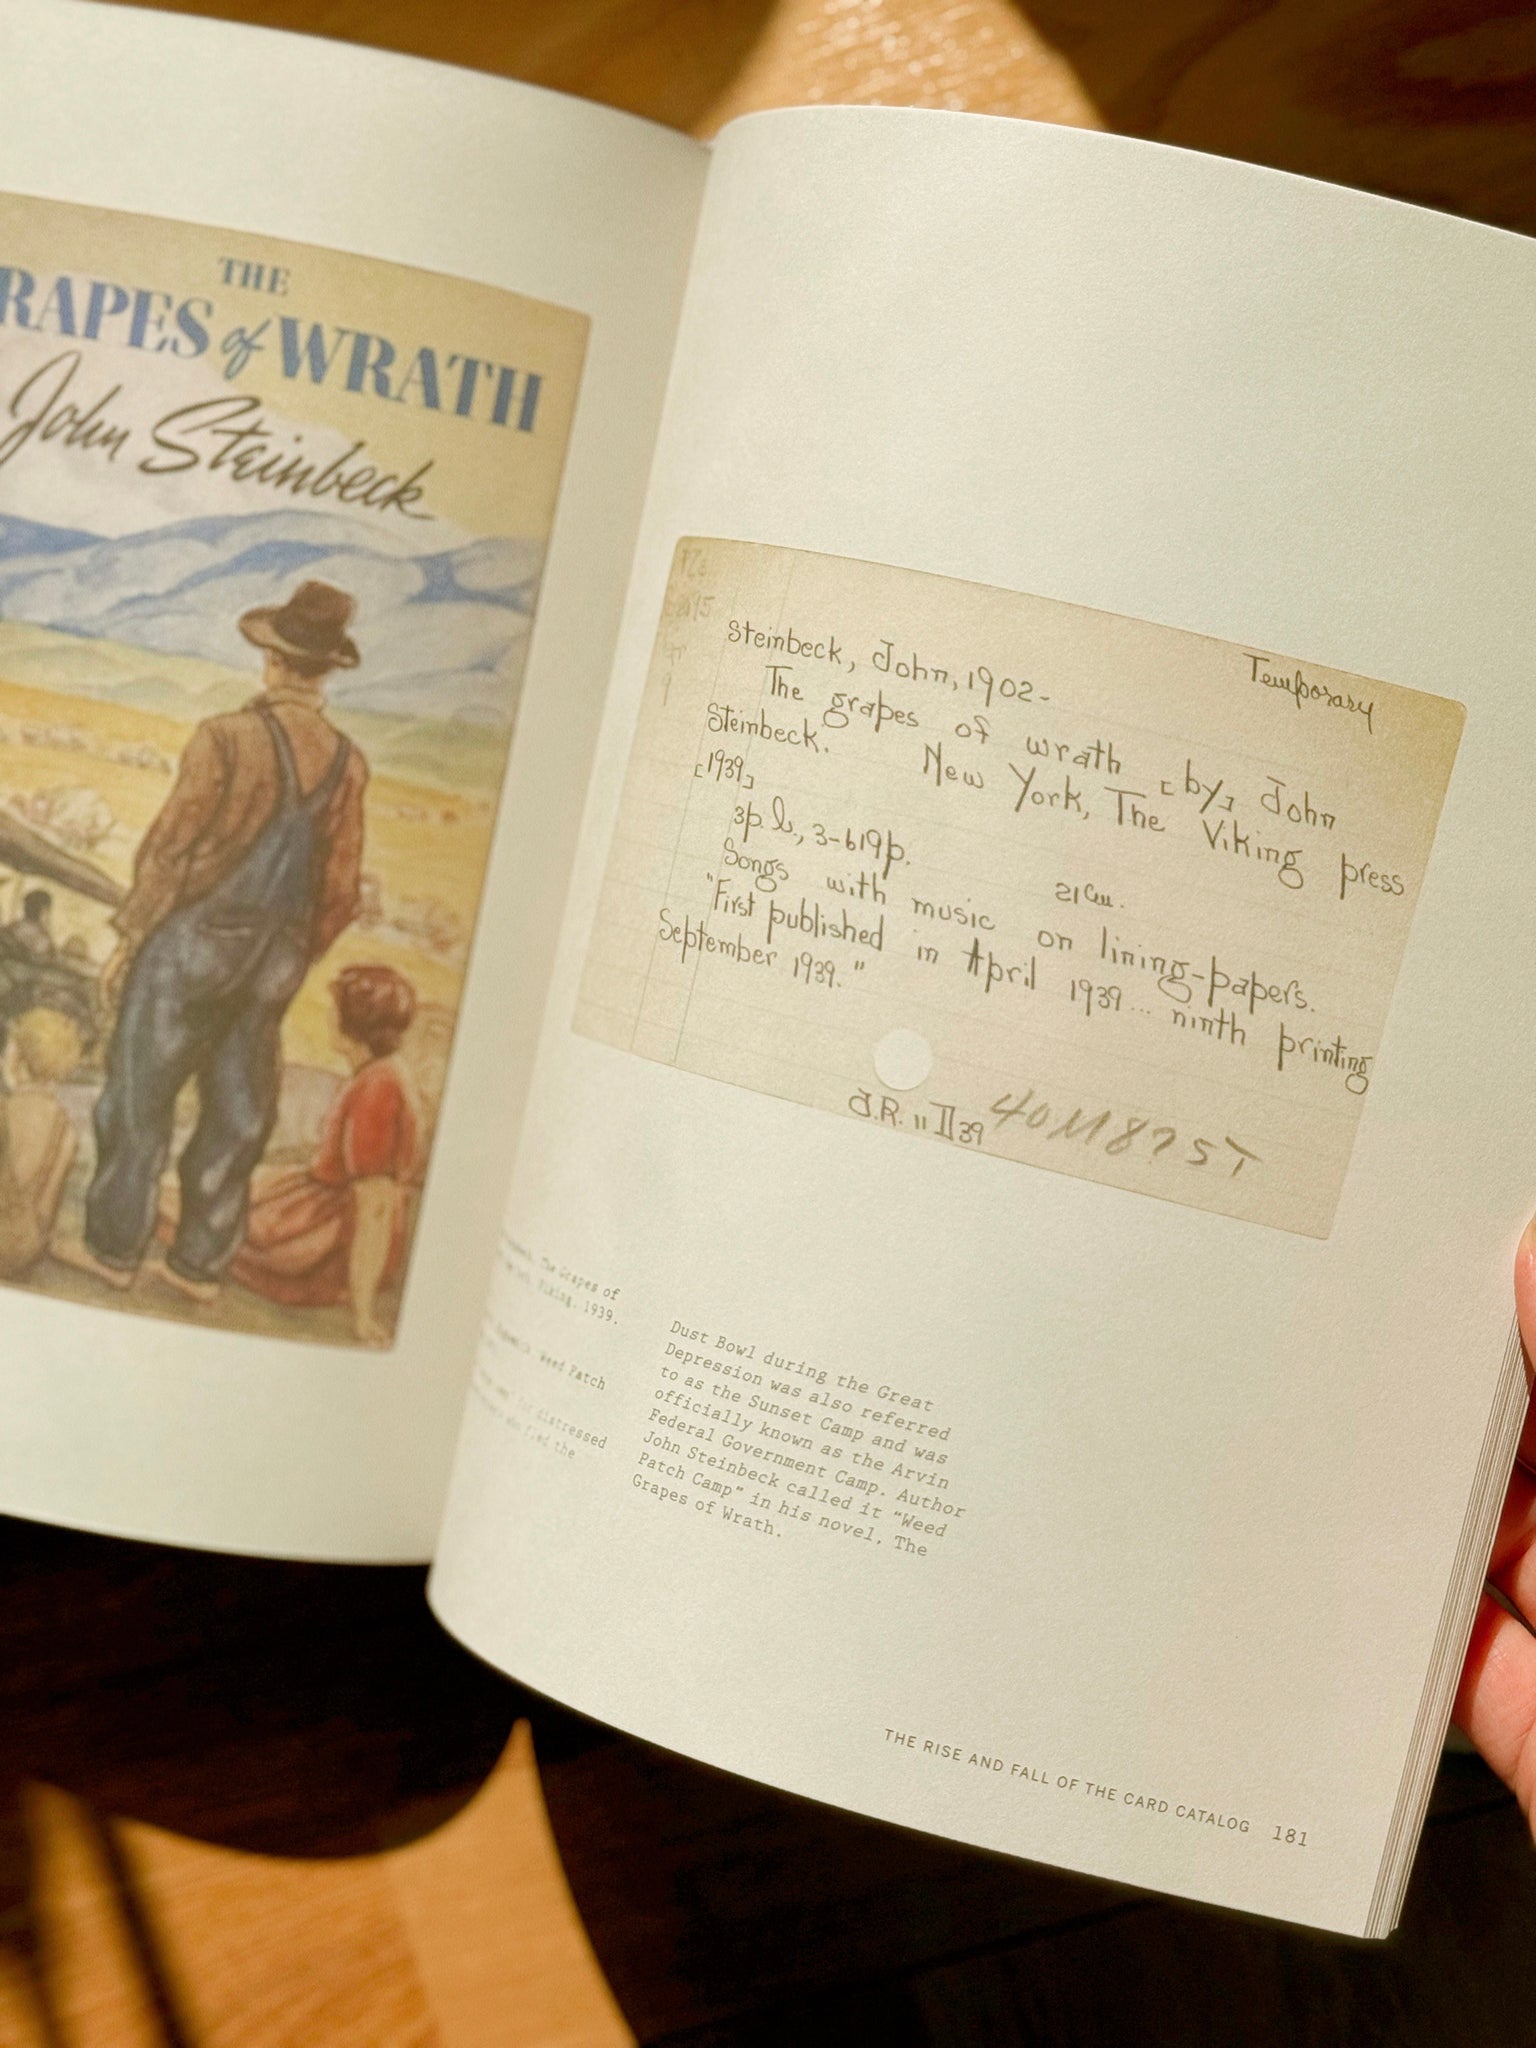 THE
RAPES of WRATH
John Steinbeck
Temporary
Steinbeck, John, 1902-
The grapes of wrath [by] John
Steinbeck. New York, The Viking press
[1939]
3p. l., 3-619p. 21cm.
Songs with music on lining-papers.
"First published in April 1939... ninth printing
September 1939."
J.R. 11 II 39 40M875T
The Grapes of
Viking, 1939.
Weed Patch
for distressed
who fled the
Dust Bowl during the Great
Depression was also referred
to as the Sunset Camp and was
officially known as the Arvin
Federal Government Camp. Author
John Steinbeck called it "Weed
Patch Camp" in his novel, The
Grapes of Wrath.
THE RISE AND FALL OF THE CARD CATALOG 181